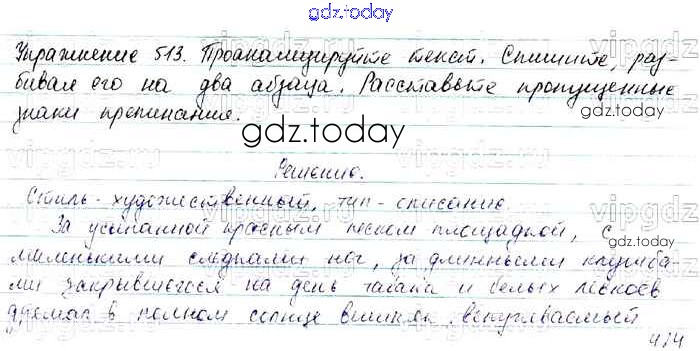 gdz.today
Упражнение 513. Проанализируйте текст. Спишите, раз-
бивая его на два абзаца. Расставьте пропущенные
знаки препинания.
gdz.today
Решение.
Стиль - художественный, тип - описание.
За усыпанной красным песком площадкой, с
gdz.today
маленькими следами ног, за длинными клумба-
ми закрывшегося на день табака и белых левкоев
дремал в полном солнце вишняк, вспугиваемый
414
vipgdz